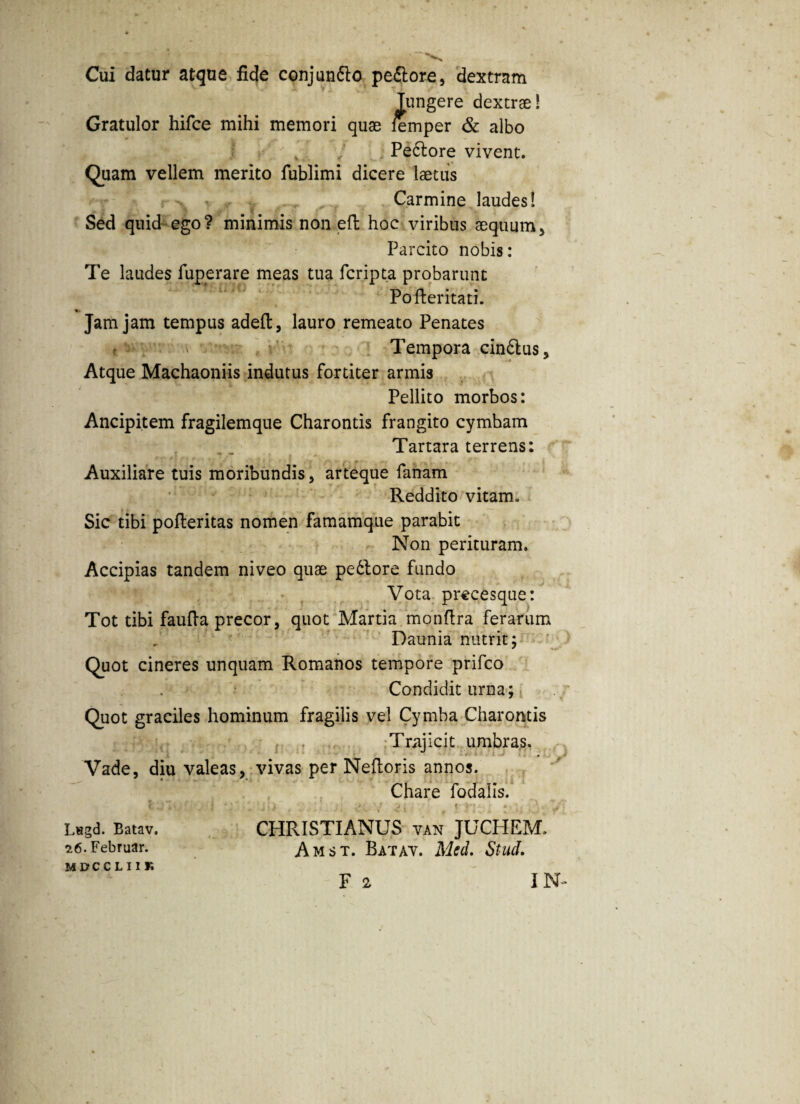 Cui datur atque fide conjunƈto peƈtore, dextram
Jungere dextræ!
Gratulor hiſce mihi memori quæ ſemper & albo
Peƈtore vivent.
Quam vellem merito ſublimi dicere lætus
Carmine laudes!
Sed quid ego? minimis non eſt hoc viribus æquum,
Parcito nobis:
Te laudes ſuperare meas tua ſcripta probarunt
Poſteritati.
Jam jam tempus adeſt, lauro remeato Penates
Tempora cinƈtus,
Atque Machaoniis indutus fortiter armis
Pellito morbos:
Ancipitem fragilemque Charontis frangito cymbam
Tartara terrens:
Auxiliare tuis moribundis, arteque ſanam
Reddito vitam.
Sic tibi poſteritas nomen famamque parabit
Non perituram.
Accipias tandem niveo quæ peƈtore fundo
Vota precesque:
Tot tibi fauſta precor, quot Martia monſtra ferarum
Daunia nutrit;
Quot cineres unquam Romanos tempore priſco
Condidit urna;
Quot graciles hominum fragilis vel Cymba Charontis
Trajicit umbras.
Vade, diu valeas, vivas per Neſtoris annos.
Chare ſodalis.
Lugd. Batav. CHRISTIANUS VAN JUCHEM.
26. Februar. AMST. BATAV. Med. Stud.
MDCCLIII.
F 2 IN-